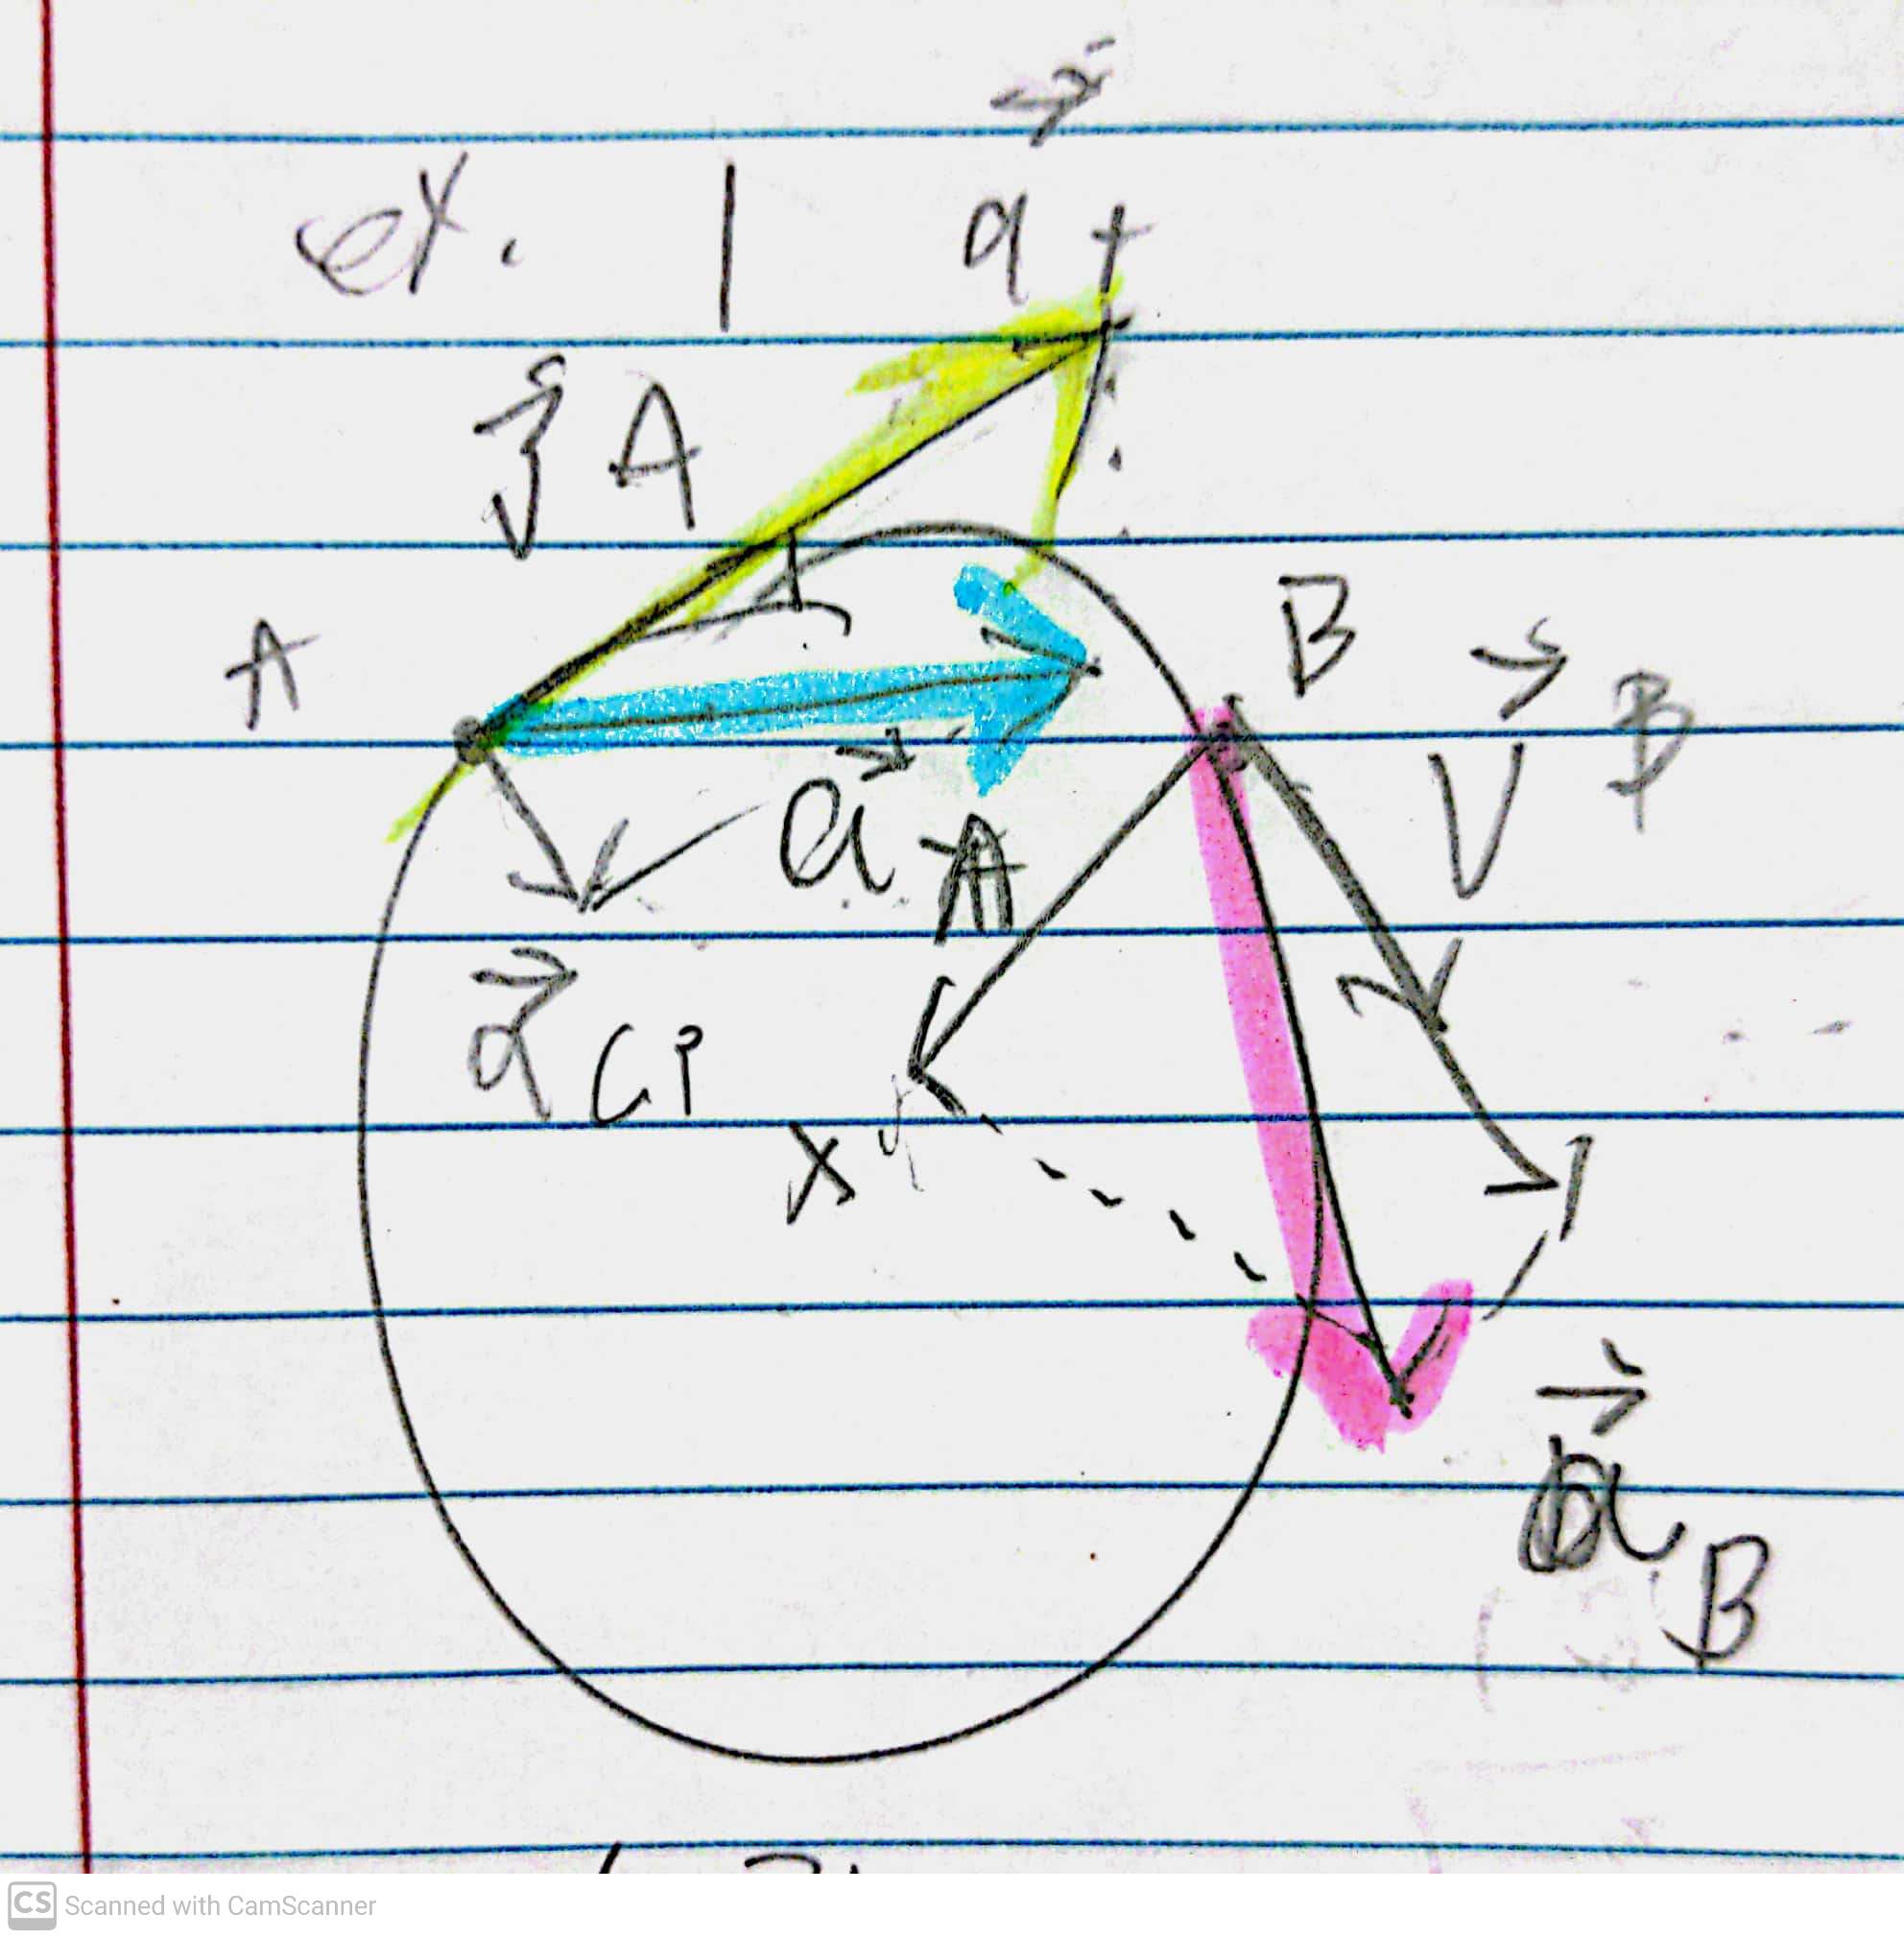 ex. 1
a t
A
A
B
V B
a A
a cp
x
a B
CS Scanned with CamScanner